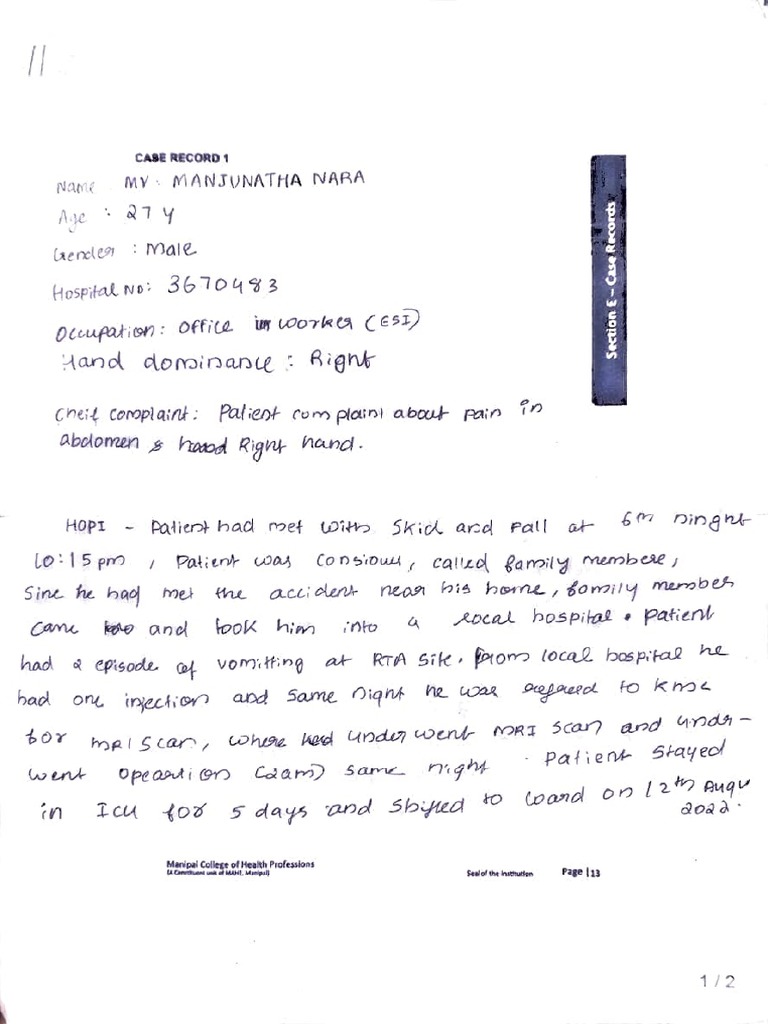 11
CASE RECORD 1
Name : Mr. MANJUNATHA NARA
Age : 27 y
Gender : Male
Hospital No: 3670483
Occupation: Office worker (ESI)
Hand dominance : Right
Cheif complaint: Patient complaint about pain in
abdomen & Right hand.
HOPI - Patient had met with skid and fall at 6th ninght
10:15 pm, Patient was consious, called family membere,
Sine he had met the accident near his home, family member
came and took him into a local hospital. Patient
had 2 episode of vomitting at RTA site. From local hospital he
had one injection and same night he was refered to KMC
for MRI scan, where had underwent MRI scan and under-
went opeartion (2am) same night. Patient stayed
in ICU for 5 days and shifted to ward on 12th Augu
2022.
Section E - Case Records
Manipal College of Health Professions
(A Constituent unit of MAHE, Manipal)
Seal of the Institution
Page | 13
1 / 2